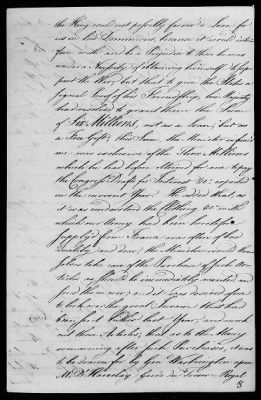 the King could not possibly favour a Loan for
us in his Dominions, because it would interfere
for with and be a Prejudice to those he was
under a Necessity of obtaining himself to sup
port the War, but that to give the States a
signal Proof of his Friendship, his Majesty
had resolved to grant them the Sum
of Six Millions, not as a Loan, but as
a Free Gift; this Sum, the Minister informed
me was exclusive of the Three Millions
which he had before obtained for me to pay
the Congress Drafts for Interest &c. expected
in the current Year. He added that as
it was understood the Clothing &c. with
which our Army had been heretofore
supplyed from France was often of bad
Quality and dear, the Ministers would them
selves take care of the Purchase of such Ar
ticles as should be immediately wanted, and
send them over, and it was desired of me
to look over the great Invoice that had
been sent hither last Year, and mark
out those Articles; that as to the Money
remaining after such Purchases, it was
to be drawn for by Gen. Washington upon
M. D'Harvelay Garde du Tresor Royal
8